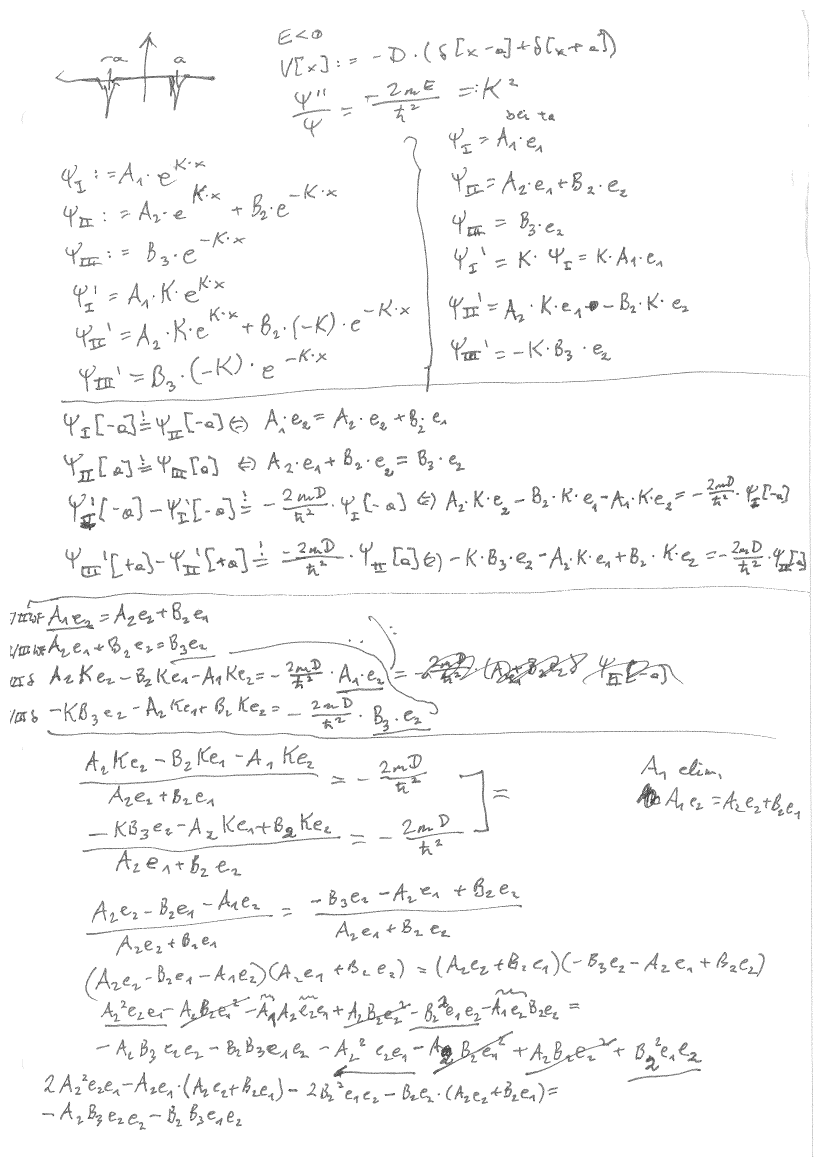 -a a
E<0
V[x] := -D·(δ[x-a]+δ[x+a])
Ψ''/Ψ = -2mE/ħ² =: K²
bei ±a
Ψ_I := A₁·e^{K·x}
Ψ_II := A₂·e^{K·x} + B₂·e^{-K·x}
Ψ_III := B₃·e^{-K·x}
Ψ_I' = A₁·K·e^{K·x}
Ψ_II' = A₂·K·e^{K·x} + B₂·(-K)·e^{-K·x}
Ψ_III' = B₃·(-K)·e^{-K·x}
Ψ_I = A₁·e₁
Ψ_II = A₂·e₁+B₂·e₂
Ψ_III = B₃·e₂
Ψ_I' = K·Ψ_I = K·A₁·e₁
Ψ_II' = A₂·K·e₁ - B₂·K·e₂
Ψ_III' = -K·B₃·e₂
Ψ_I[-a] != Ψ_II[-a] ⇔ A₁·e₂ = A₂·e₂ + B₂·e₁
Ψ_II[a] != Ψ_III[a] ⇔ A₂·e₁ + B₂·e₂ = B₃·e₂
Ψ_II'[-a] - Ψ_I'[-a] != -2mD/ħ² · Ψ_I[-a] ⇔ A₂·K·e₂ - B₂·K·e₁ - A₁·K·e₂ = -2mD/ħ² · Ψ_I[-a]
Ψ_III'[+a] - Ψ_II'[+a] != -2mD/ħ² · Ψ_II[a] ⇔ -K·B₃·e₂ - A₂·K·e₁ + B₂·K·e₂ = -2mD/ħ² · Ψ_II[a]
A₁e₂ = A₂e₂ + B₂e₁
A₂e₁ + B₂e₂ = B₃e₂
A₂Ke₂ - B₂Ke₁ - A₁Ke₂ = -2mD/ħ² · A₁·e₂
-KB₃e₂ - A₂Ke₁ + B₂Ke₂ = -2mD/ħ² · B₃·e₂
(A₂Ke₂ - B₂Ke₁ - A₁Ke₂)/(A₂e₂ + B₂e₁) = -2mD/ħ²
(-KB₃e₂ - A₂Ke₁ + B₂Ke₂)/(A₂e₁ + B₂e₂) = -2mD/ħ² ] =
A₁ elim.
A₁e₂ = A₂e₂+B₂e₁
(A₂e₂ - B₂e₁ - A₁e₂)/(A₂e₂ + B₂e₁) = (-B₃e₂ - A₂e₁ + B₂e₂)/(A₂e₁ + B₂e₂)
(A₂e₂ - B₂e₁ - A₁e₂)(A₂e₁ + B₂e₂) = (A₂e₂ + B₂e₁)(-B₃e₂ - A₂e₁ + B₂e₂)
A₂²e₂e₁ - A₂B₂e₁² - A₁A₂e₂e₁ + A₂B₂e₂² - B₂²e₁e₂ - A₁e₂B₂e₂ =
-A₂B₃e₂e₂ - B₂B₃e₁e₂ - A₂²e₂e₁ - A₂B₂e₁² + A₂B₂e₂² + B₂²e₁e₂
2A₂²e₂e₁ - A₂e₁·(A₂e₂+B₂e₁) - 2B₂²e₁e₂ - B₂e₂·(A₂e₂+B₂e₁) =
-A₂B₃e₂e₂ - B₂B₃e₁e₂